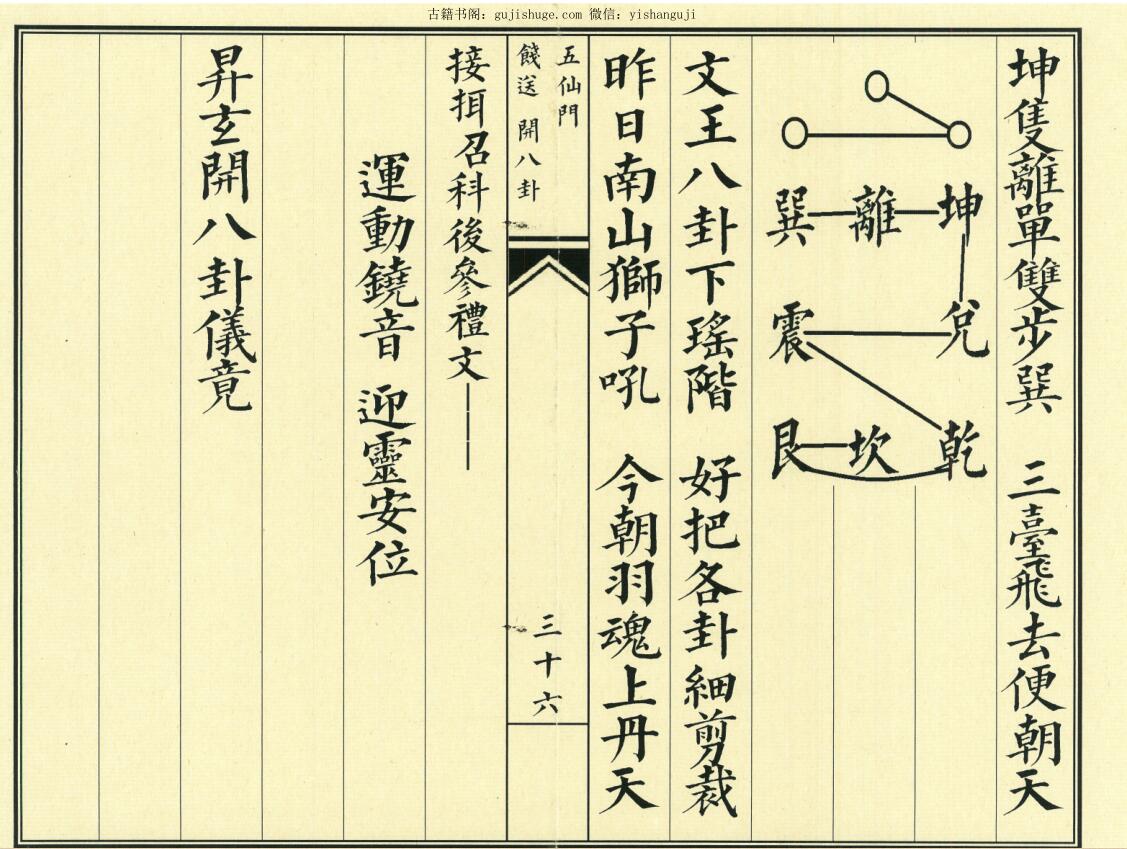 古籍书阁：gujishuge.com 微信：yishanguji
坤隻離單雙步巽 三臺飛去便朝天
巽 離 坤
震 兌
艮 坎 乾
文王八卦下瑤階 好把各卦細剪裁
昨日南山獅子吼 今朝羽魂上丹天
五仙門
餞送 開八卦
三十六
接挕召科後參禮文
運動鐃音 迎靈安位
昇玄開八卦儀竟